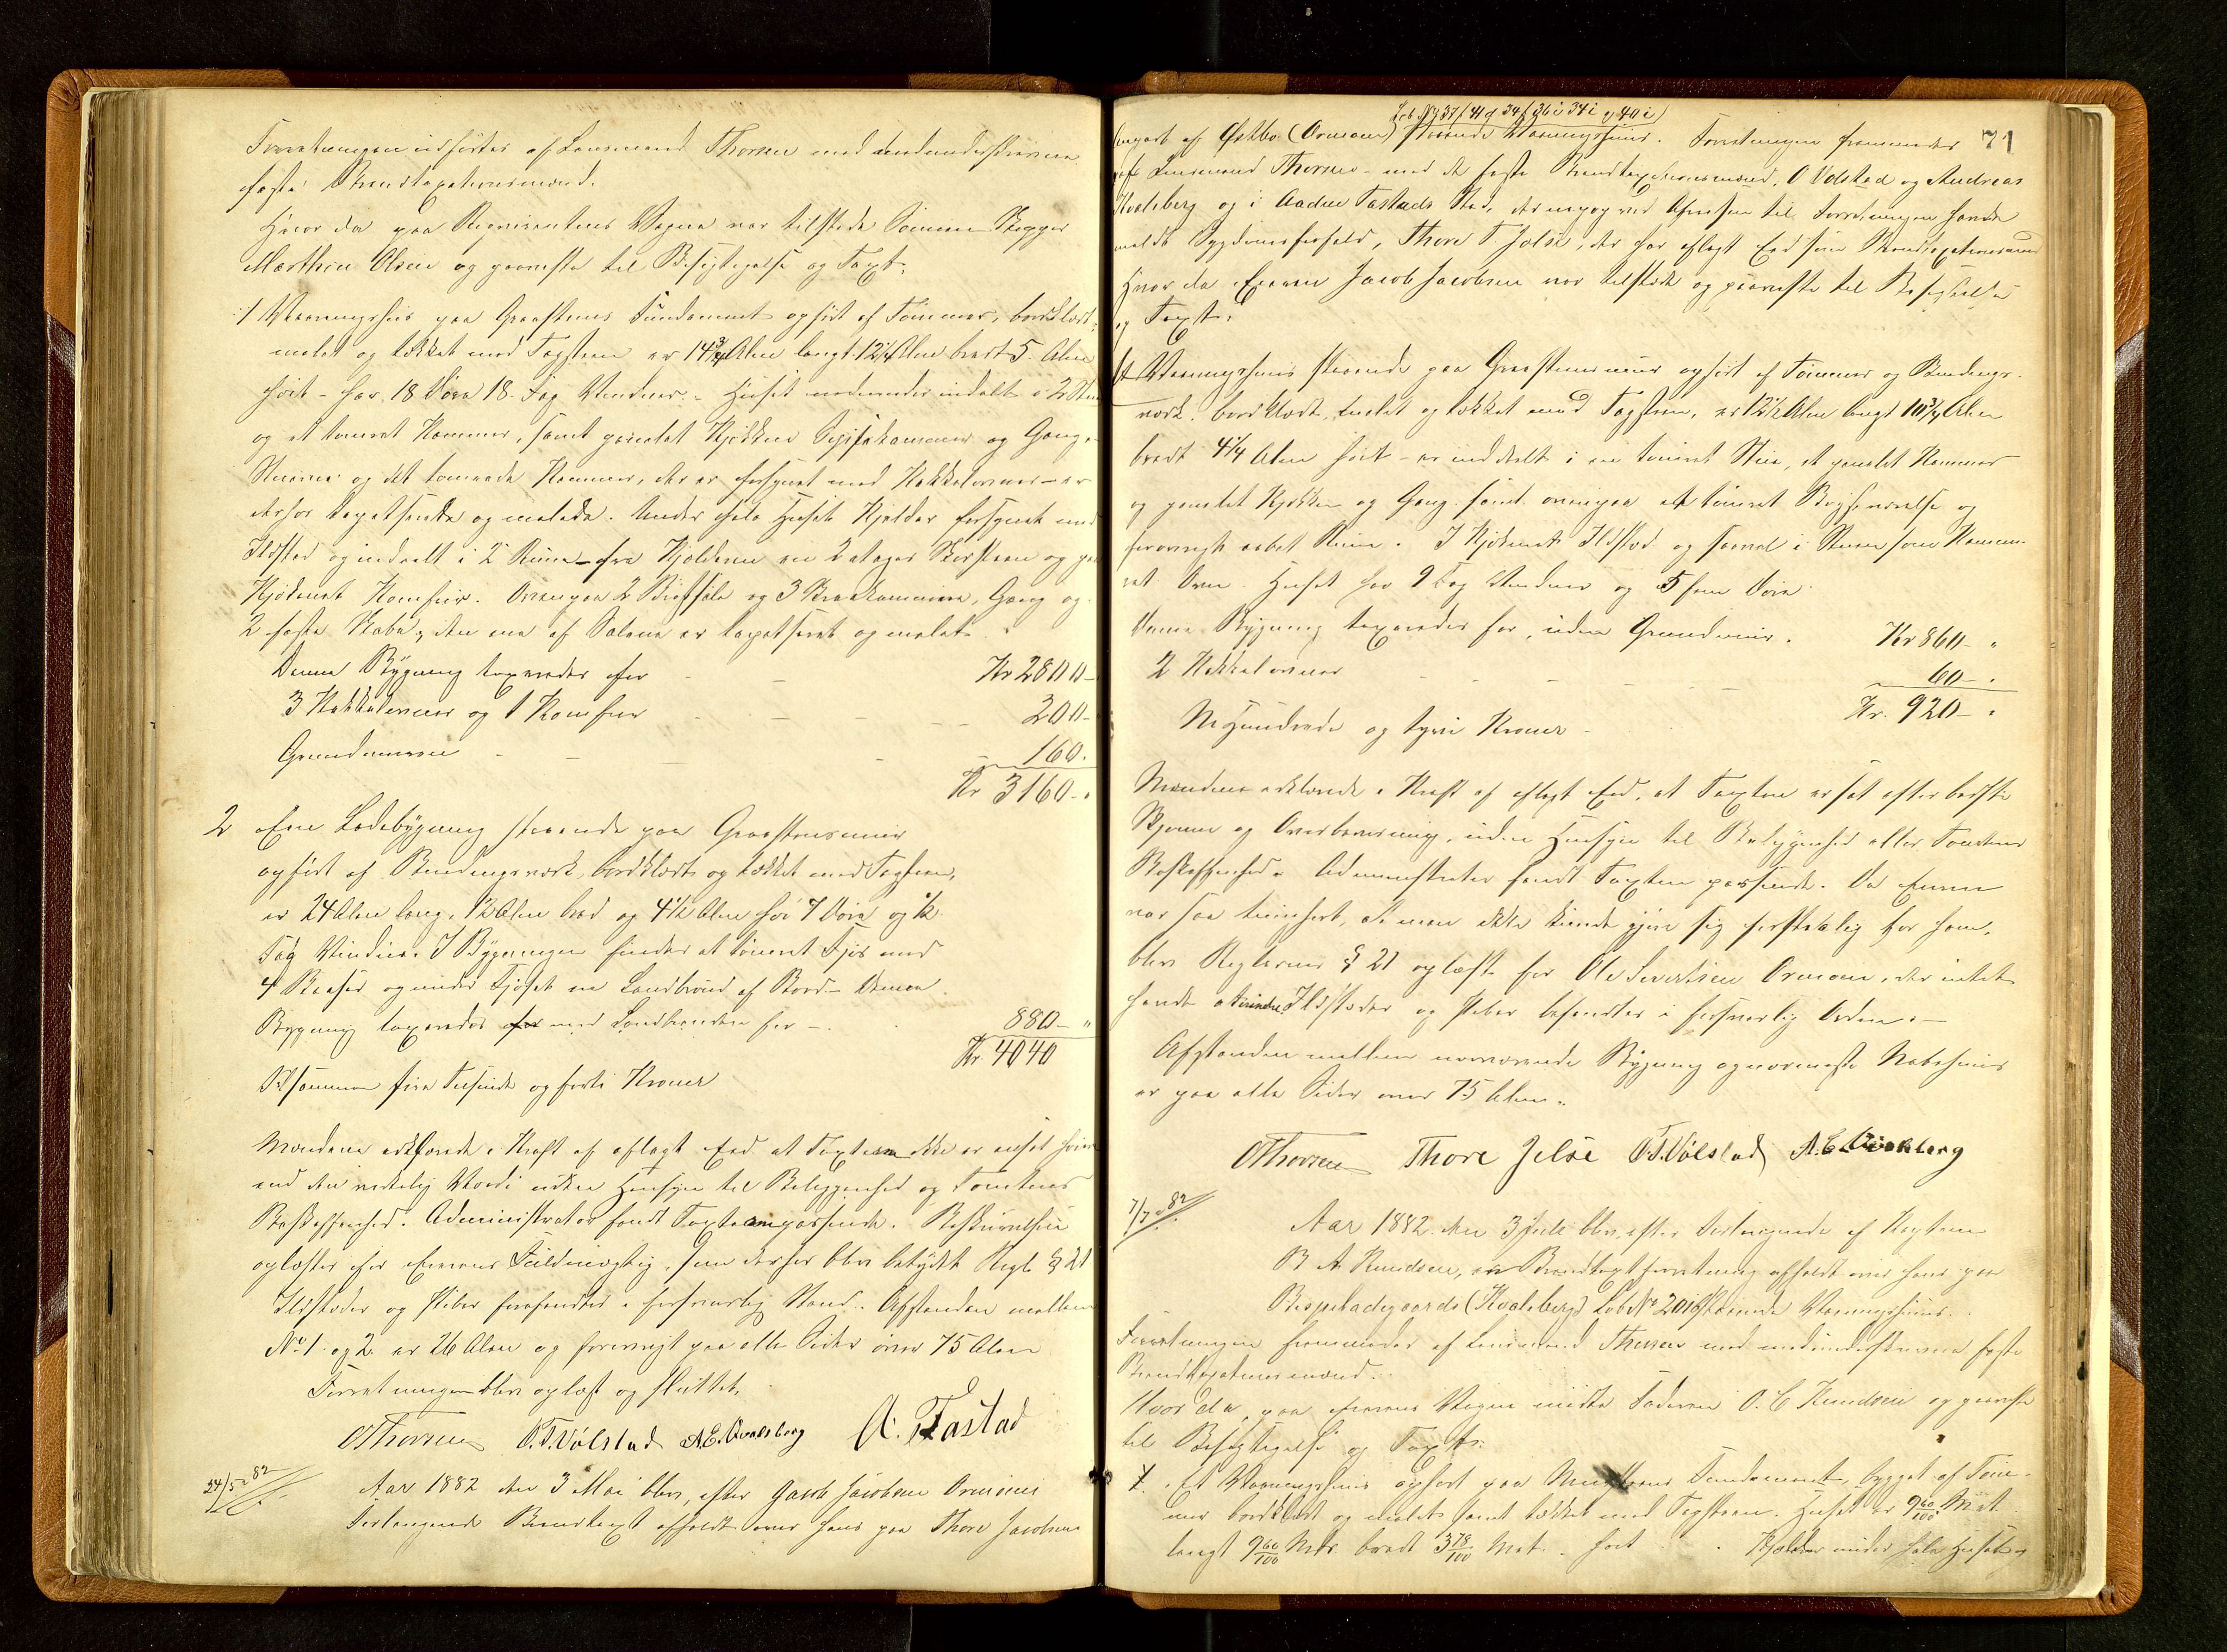 Forretningen udførtes af Lensmand Thorsen med medunderskrevne
faste Brandtaxationsmænd.
Hvor da paa Reqvirentens Vegne var tilstede Tømmer
Marthin Olsen og paaviste til Besigtigelse og Taxt.
1 Vaaningshus paa Graastens Fundament opført af Tømmer, bordklædt,
malet og tækket med Tagsteen er 14¾ Alen langt 12½ Alen bredt 5 Alen
høit - har 18 Døre 18 Fag Vinduer. - Huset nedenunder inddelt i 2 Stuer
og et tømret Kammer, samt panelet Kjøkken Spisekammer og Gang.
Stuerne og det tømrede Kammer, der er forsynet med Kakkelovne - er
derfor tapetserede og malede. Under hele Huset Kjelder forsynet med
Ildsted og inddelt i 2 Rum - fra Kjelderen en 2 etages Skorsteen og paa
Kjøkenet Komfur. Ovenpaa 2 Sale og 3 Kammere, Gang og
2 faste Skabe, den ene af Salene er tapetseret og malet.
Denne Bygning taxeredes for - - Kr 2800 -
3 Kakkelovner og 1 Komfur - - - 200 -
Grundmuren - - - - 160.
Kr 3160 - .
2 En Ladebygning staaende paa Graasteensmuur
opført af Bindingsværk, bordklædt og tækket med Tagsteen,
er 24 Alen lang, 12 Alen bred og 4½ Alen høi 7 Døre og ½
Fag Vindue. I Bygningen findes et tømret Fjøs med
4 Baase og under Fjøset en Landbrønd af Bord - Denne
Bygning taxeredes for med Landbrønden for - 880 - "
Kr 4040
Tilsammen fire Tusinde og forti Kroner
Mændene erklærede i Kraft af aflagt Eed at Taxten ikke er ansat høiere
end den virkelig Værdi uden Hensyn til Beliggenhed og Tomtens
Beskaffenhed. Administrator fandt Taxten passende. Beskrivelsen
oplæstes for Eierens Fuldmægtig, som derfor blev betydet Regl § 21
Ildsteder og Piber forefandtes i forsvarlig Stand. Afstanden mellem
No 1 og 2 er 26 Alen og forøvrigt paa alle Sider over 75 Alen
Forretningen blev oplæst og sluttet.
OThorsen O.T.Vølstad A.E.Qvaleberg A. Tastad
24/5 82
Aar 1882 den 3 Mai blev, efter Jacob Jacobsen Ormøens
Forlangende Brandtaxt afholdt over hans paa Thore Jacobsens
Løb. No 37/41 g 34f 36i 34i g 40i)
71
af Østbø (Ormøen) staaende Vaaningshuus. Forretningen fremmedes
af Lensmand Thorsen - med de faste Brandtaxationsmænd, O Vølstad og Andreas
Kvaleberg og i Aadne Tastads Sted, der ved Ansøgning til Forretningen havde
meldt Sygdomsforfald, Thore T Jelse, der har aflagt Eed som Brandtaxationsmand
Hvor da Eieren Jacob Jacobsen var tilstede og paaviste til Besigtigelse
og Taxt:
Et Vaaningshuus staaende paa Graasteensmuur opført af Tømmer og Bindings-
værk, bordklædt, malet og tækket med Tagsteen, er 12½ Alen langt 10¾ Alen
bredt 4¼ Alen høit - er inddelt i en tømret Stue, et panelet Kammer
og panelet Kjøkken og Gang samt ovenpaa et tømret Værelse og
forøvrigt aabet Rum. I Kjøkenet Ildsted og saavel i Stuen som Kamme-
ret Ovn. Huset har 9 Fag Vinduer og 5 Døre.
Denne Bygning taxeredes for, uden Grundmuur. Kr 860 - "
2 Kakkelovner - - - - 60 - .
Kr. 920 - .
Ni Hundrede og tyve Kroner -
Mændene erklærede i Kraft af aflagt Eed, at Taxten er sat efter bedste
Skjøn og Overbevisning, uden Hensyn til Beliggenhed eller Tomtens
Beskaffenhed. Administrator fandt Taxten passende. Da Eieren
var saa tunghørt, at man ikke kunde gjøre sig forstaaelig for ham,
blev Reglernes § 21 oplæst for Ole Sivertsen Ormøen, der intet
havde at erindre Ildsteder og Piber befandtes i forsvarlig Orden. -
Afstanden mellem nærværende Bygning og nærmeste Nabohuus
er paa alle Sider over 75 Alen.
OThorsen Thore Jelse O.T.Vølstad A.E.Qvaleberg
7/7 82
Aar 1882 den 3 Juli blev efter Forlangende af Kaptein
B A Knudsen, en Brandtaxtforretning afholdt over hans paa
Bispeladegaards (Kvaleberg) Løb No 201 staaende Vaaningshuus.
Forretningen fremmedes af Lensmand Thorsen med medunderskrevne faste
Brandtaxationsmænd.
Hvor da paa Eierens Vegne mødte Faderen O. C Knudsen og paaviste
til Besigtigelse og Taxt:
1. Et Vaaningshuus opført paa Fundament, bygget af Tøm-
mer bordklædt og malet samt tækket med Tagsteen. Huset er 9 60/100 Met.
langt 9 60/100 Met. bredt 3 78/100 Met. høit. Kjelder under hele Huset